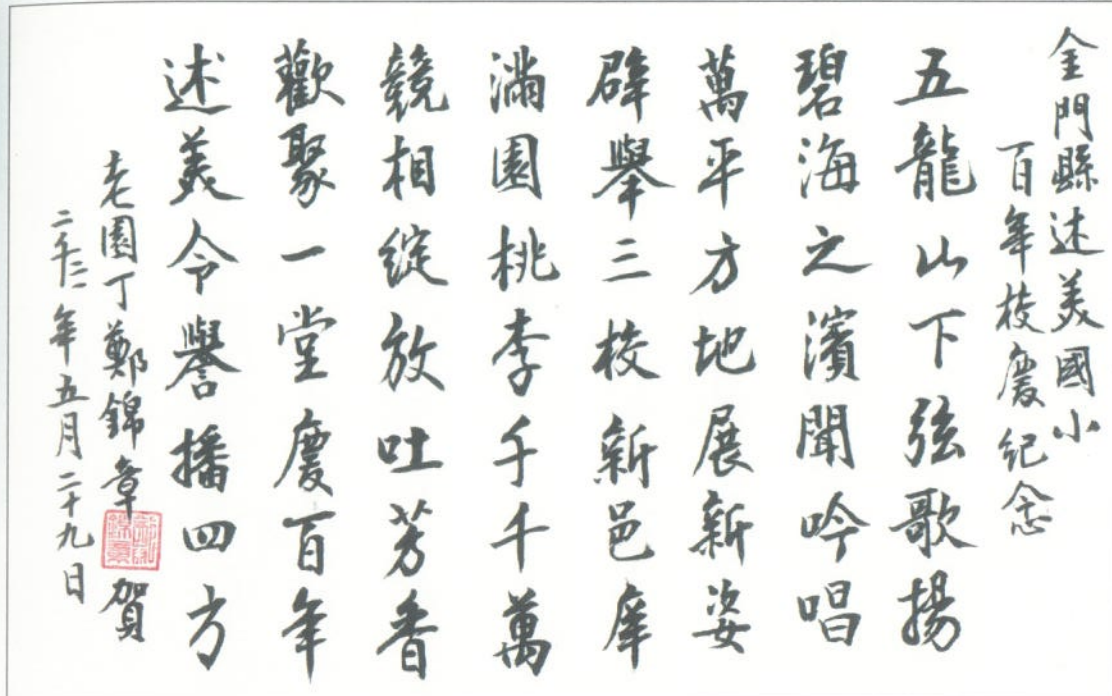 金門縣述美國小
百年校慶紀念
五龍山下弦歌揚
碧海之濱聞吟唱
萬平方地展新姿
辟舉三校新邑庠
滿園桃李千千萬
競相綻放吐芳香
歡聚一堂慶百年
述美令譽播四方
老園丁鄭錦章賀
二千二二年五月二十九日